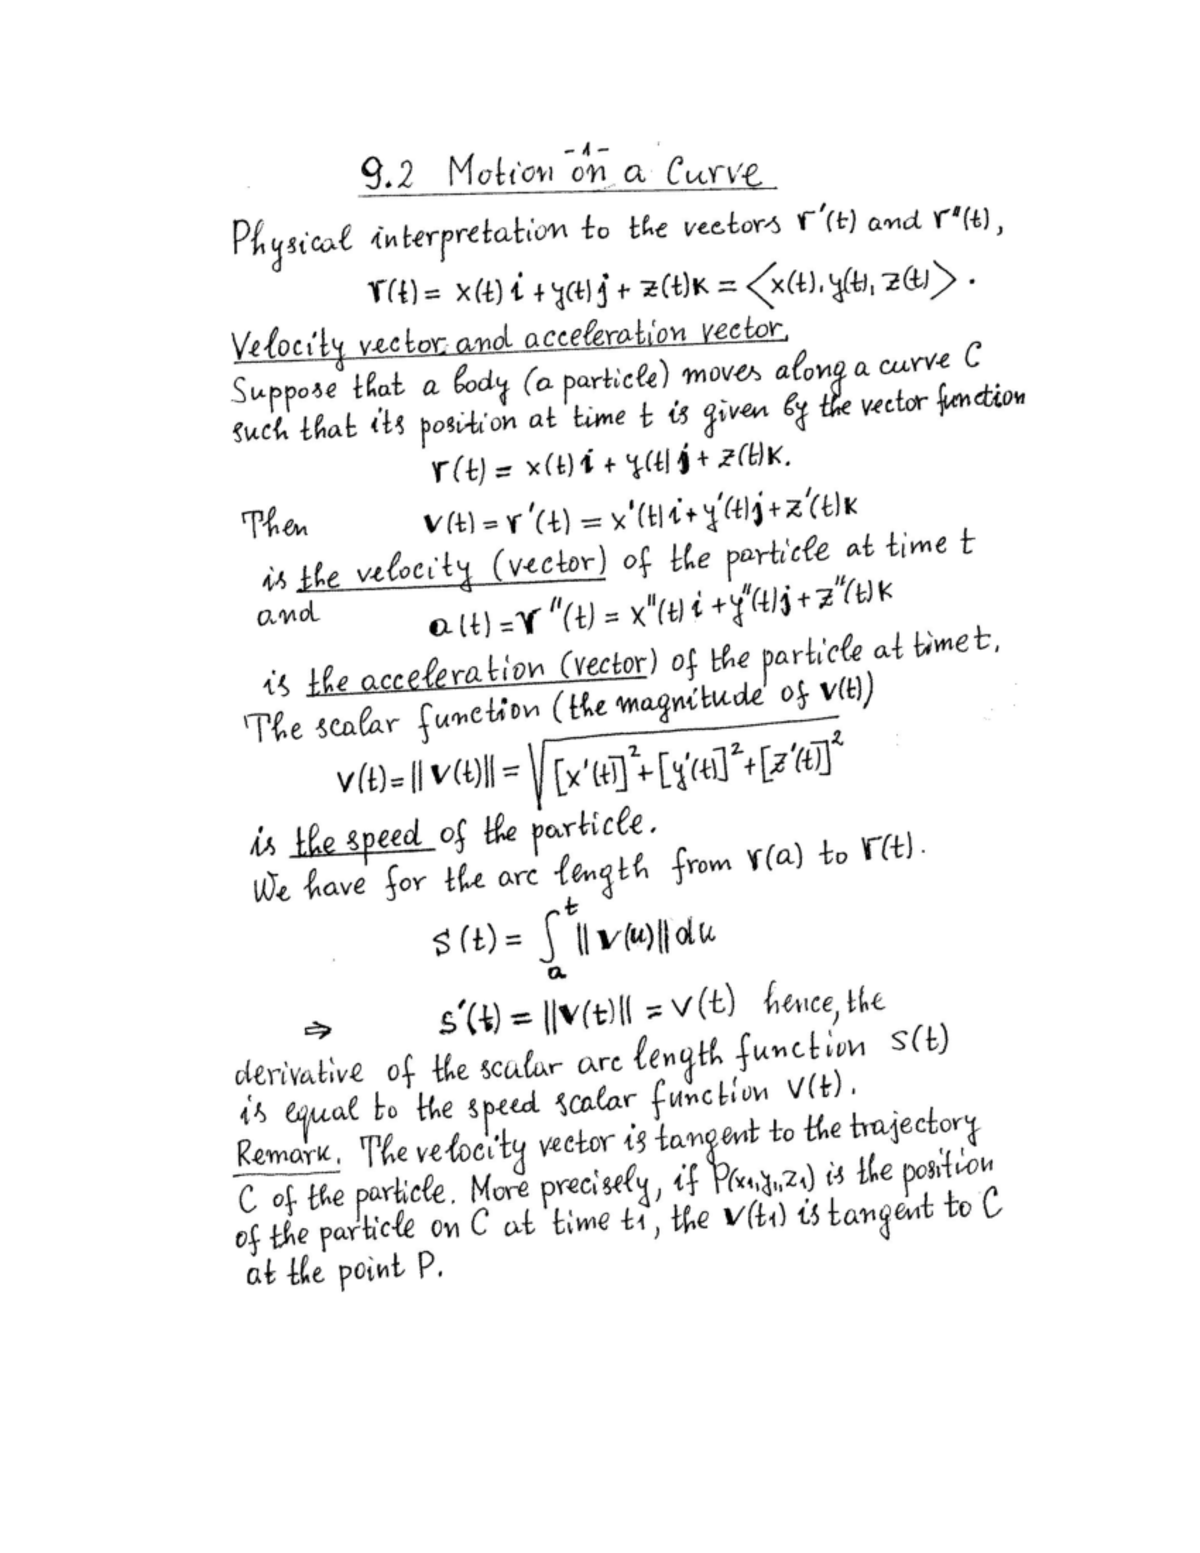 -1-
9.2 Motion on a Curve
Physical interpretation to the vectors r'(t) and r"(t),
r(t) = x(t) i + y(t) j + z(t) k = <x(t), y(t), z(t)>.
Velocity vector and acceleration vector.
Suppose that a body (a particle) moves along a curve C
such that its position at time t is given by the vector function
r(t) = x(t) i + y(t) j + z(t) k.
Then v(t) = r'(t) = x'(t) i + y'(t) j + z'(t) k
is the velocity (vector) of the particle at time t
and a(t) = r"(t) = x"(t) i + y"(t) j + z"(t) k
is the acceleration (vector) of the particle at time t.
The scalar function (the magnitude of v(t))
v(t) = ||v(t)|| = √[x'(t)]²+[y'(t)]²+[z'(t)]²
is the speed of the particle.
We have for the arc length from r(a) to r(t).
s(t) = ∫ₐᵗ ||v(u)|| du
⇒ s'(t) = ||v(t)|| = v(t) hence, the
derivative of the scalar arc length function s(t)
is equal to the speed scalar function v(t).
Remark. The velocity vector is tangent to the trajectory
C of the particle. More precisely, if P(x₁,y₁,z₁) is the position
of the particle on C at time t₁, the v(t₁) is tangent to C
at the point P.